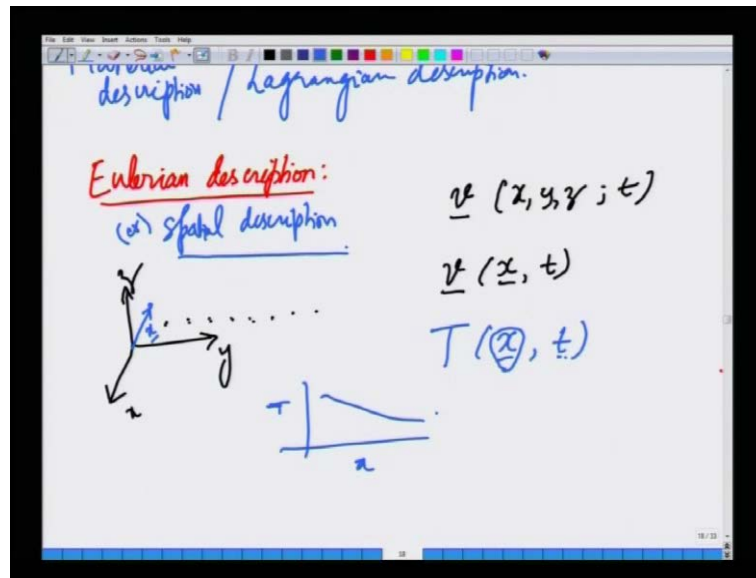 File Edit View Insert Actions Tools Help
B I
description / Lagrangian description.
Eulerian description:
(or) spatial description
v (x, y, z ; t)
v (x, t)
T (x, t)
z
x
y
x
T
x
18 / 33
18